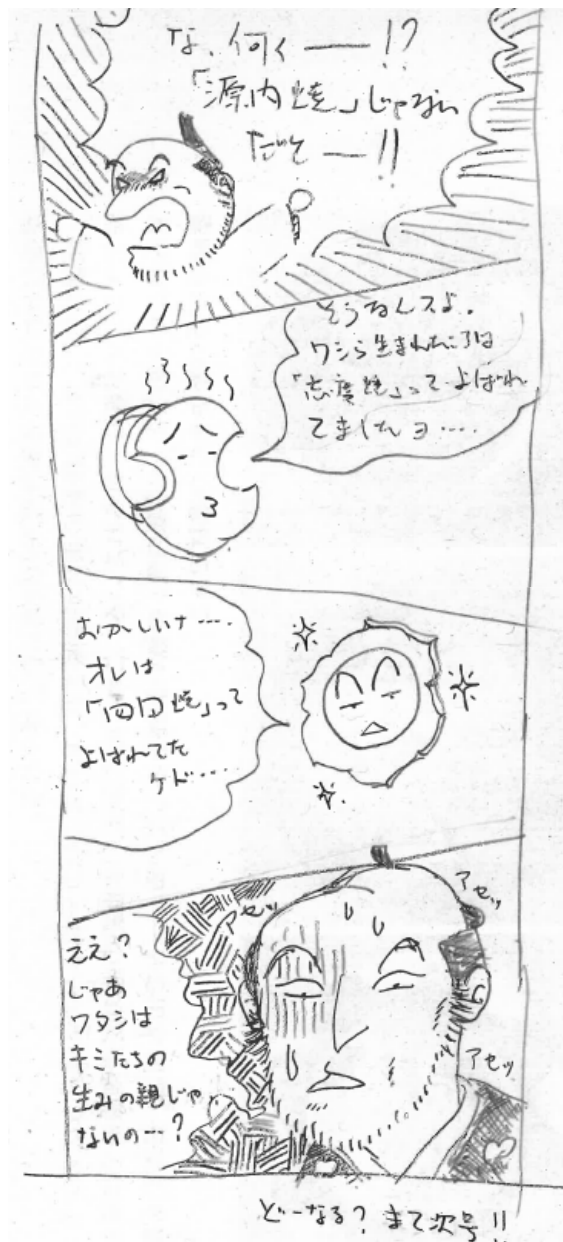 な、何ィ――!?
「源内焼」じゃない
だと――!!
そうなんスよ。
ワシら生まれたころは
「志度焼」ってよばれ
てましたヨ‥‥
おかしいナ‥‥
オレは
「四日焼」って
よばれてた
ケド‥‥
アセッ
アセッ
ええ?
じゃあ
ワタシは
キミたちの
生みの親じゃ
ないの‥?
どーなる?まて次号!!